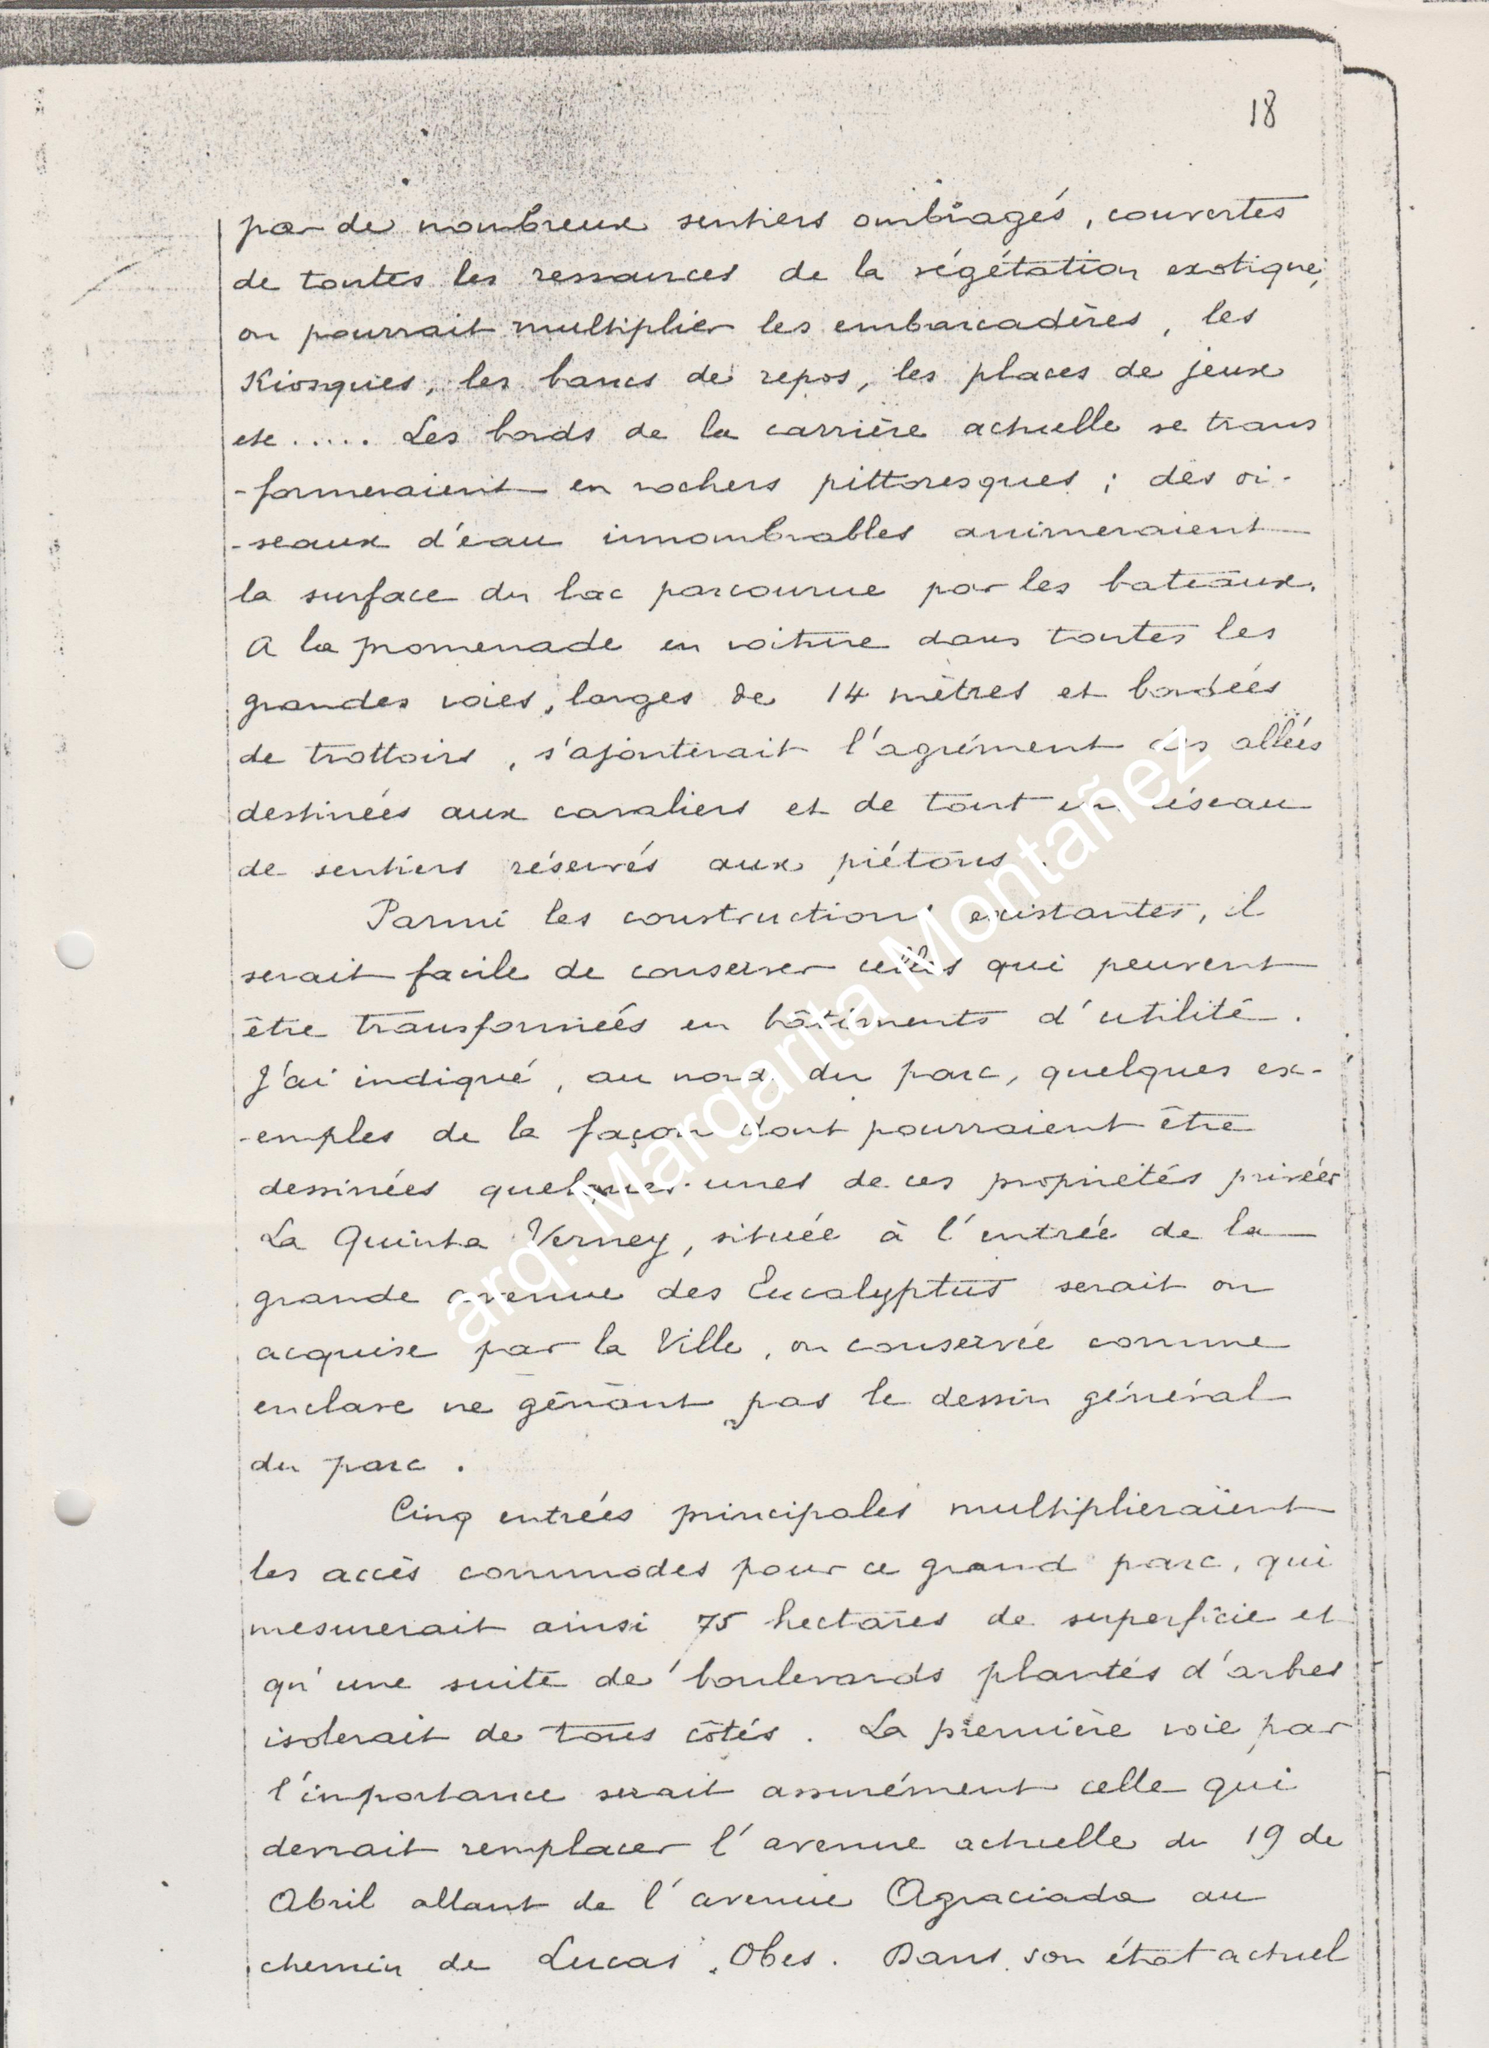 18
par de nombreux sentiers ombragés, couvertes
de toutes les ressources de la végétation exotique,
on pourrait multiplier les embarcadères, les
Kiosques, les bancs de repos, les places de jeux
etc ..... Les bords de la carrière actuelle se trans
-formeraient en rochers pittoresques ; des oi-
-seaux d'eau innombrables animeraient
la surface du lac parcourue par les bateaux.
A la promenade en voiture dans toutes les
grandes voies, larges de 14 mètres et bordées
de trottoirs, s'ajouterait l'agrément des allées
destinées aux cavaliers et de tout un réseau
de sentiers réservés aux piétons.
Parmi les constructions existantes, il
serait facile de conserver celles qui peuvent
être transformées en bâtiments d'utilité.
J'ai indiqué, au nord du parc, quelques ex-
-emples de la façon dont pourraient être
dessinées quelques-unes de ces propriétés privées
La Quinta Verney, située à l'entrée de la
grande avenue des Eucalyptus serait ou
acquise par la Ville, ou conservée comme
enclave ne gênant pas le dessin général
du parc.
Cinq entrées principales multiplieraient
les accès commodes pour ce grand parc, qui
mesurerait ainsi 75 hectares de superficie et
qu'une suite de boulevards plantés d'arbres
isolerait de tous côtés. La première voie par
l'importance serait assurément celle qui
devrait remplacer l'avenue actuelle du 19 de
Abril allant de l'avenue Agraciada au
chemin de Lucas Obes. Dans son état actuel
arq. Margarita Montañez